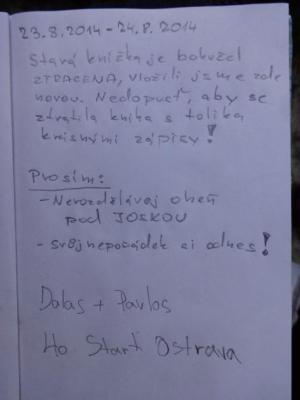 23.8.2014 - 24.8.2014
Stará knížka je bohužel
ZTRACENA, vložili jsme zde
novou. Nedopusť, aby se
ztratila kniha s tolika
krásnými zápisy!
Prosím:
- Nerozdělávej oheň
pod JOSKOU
- svůj nepořádek si odnes!
Dalas + Pavlos
TO Staří Ostrava